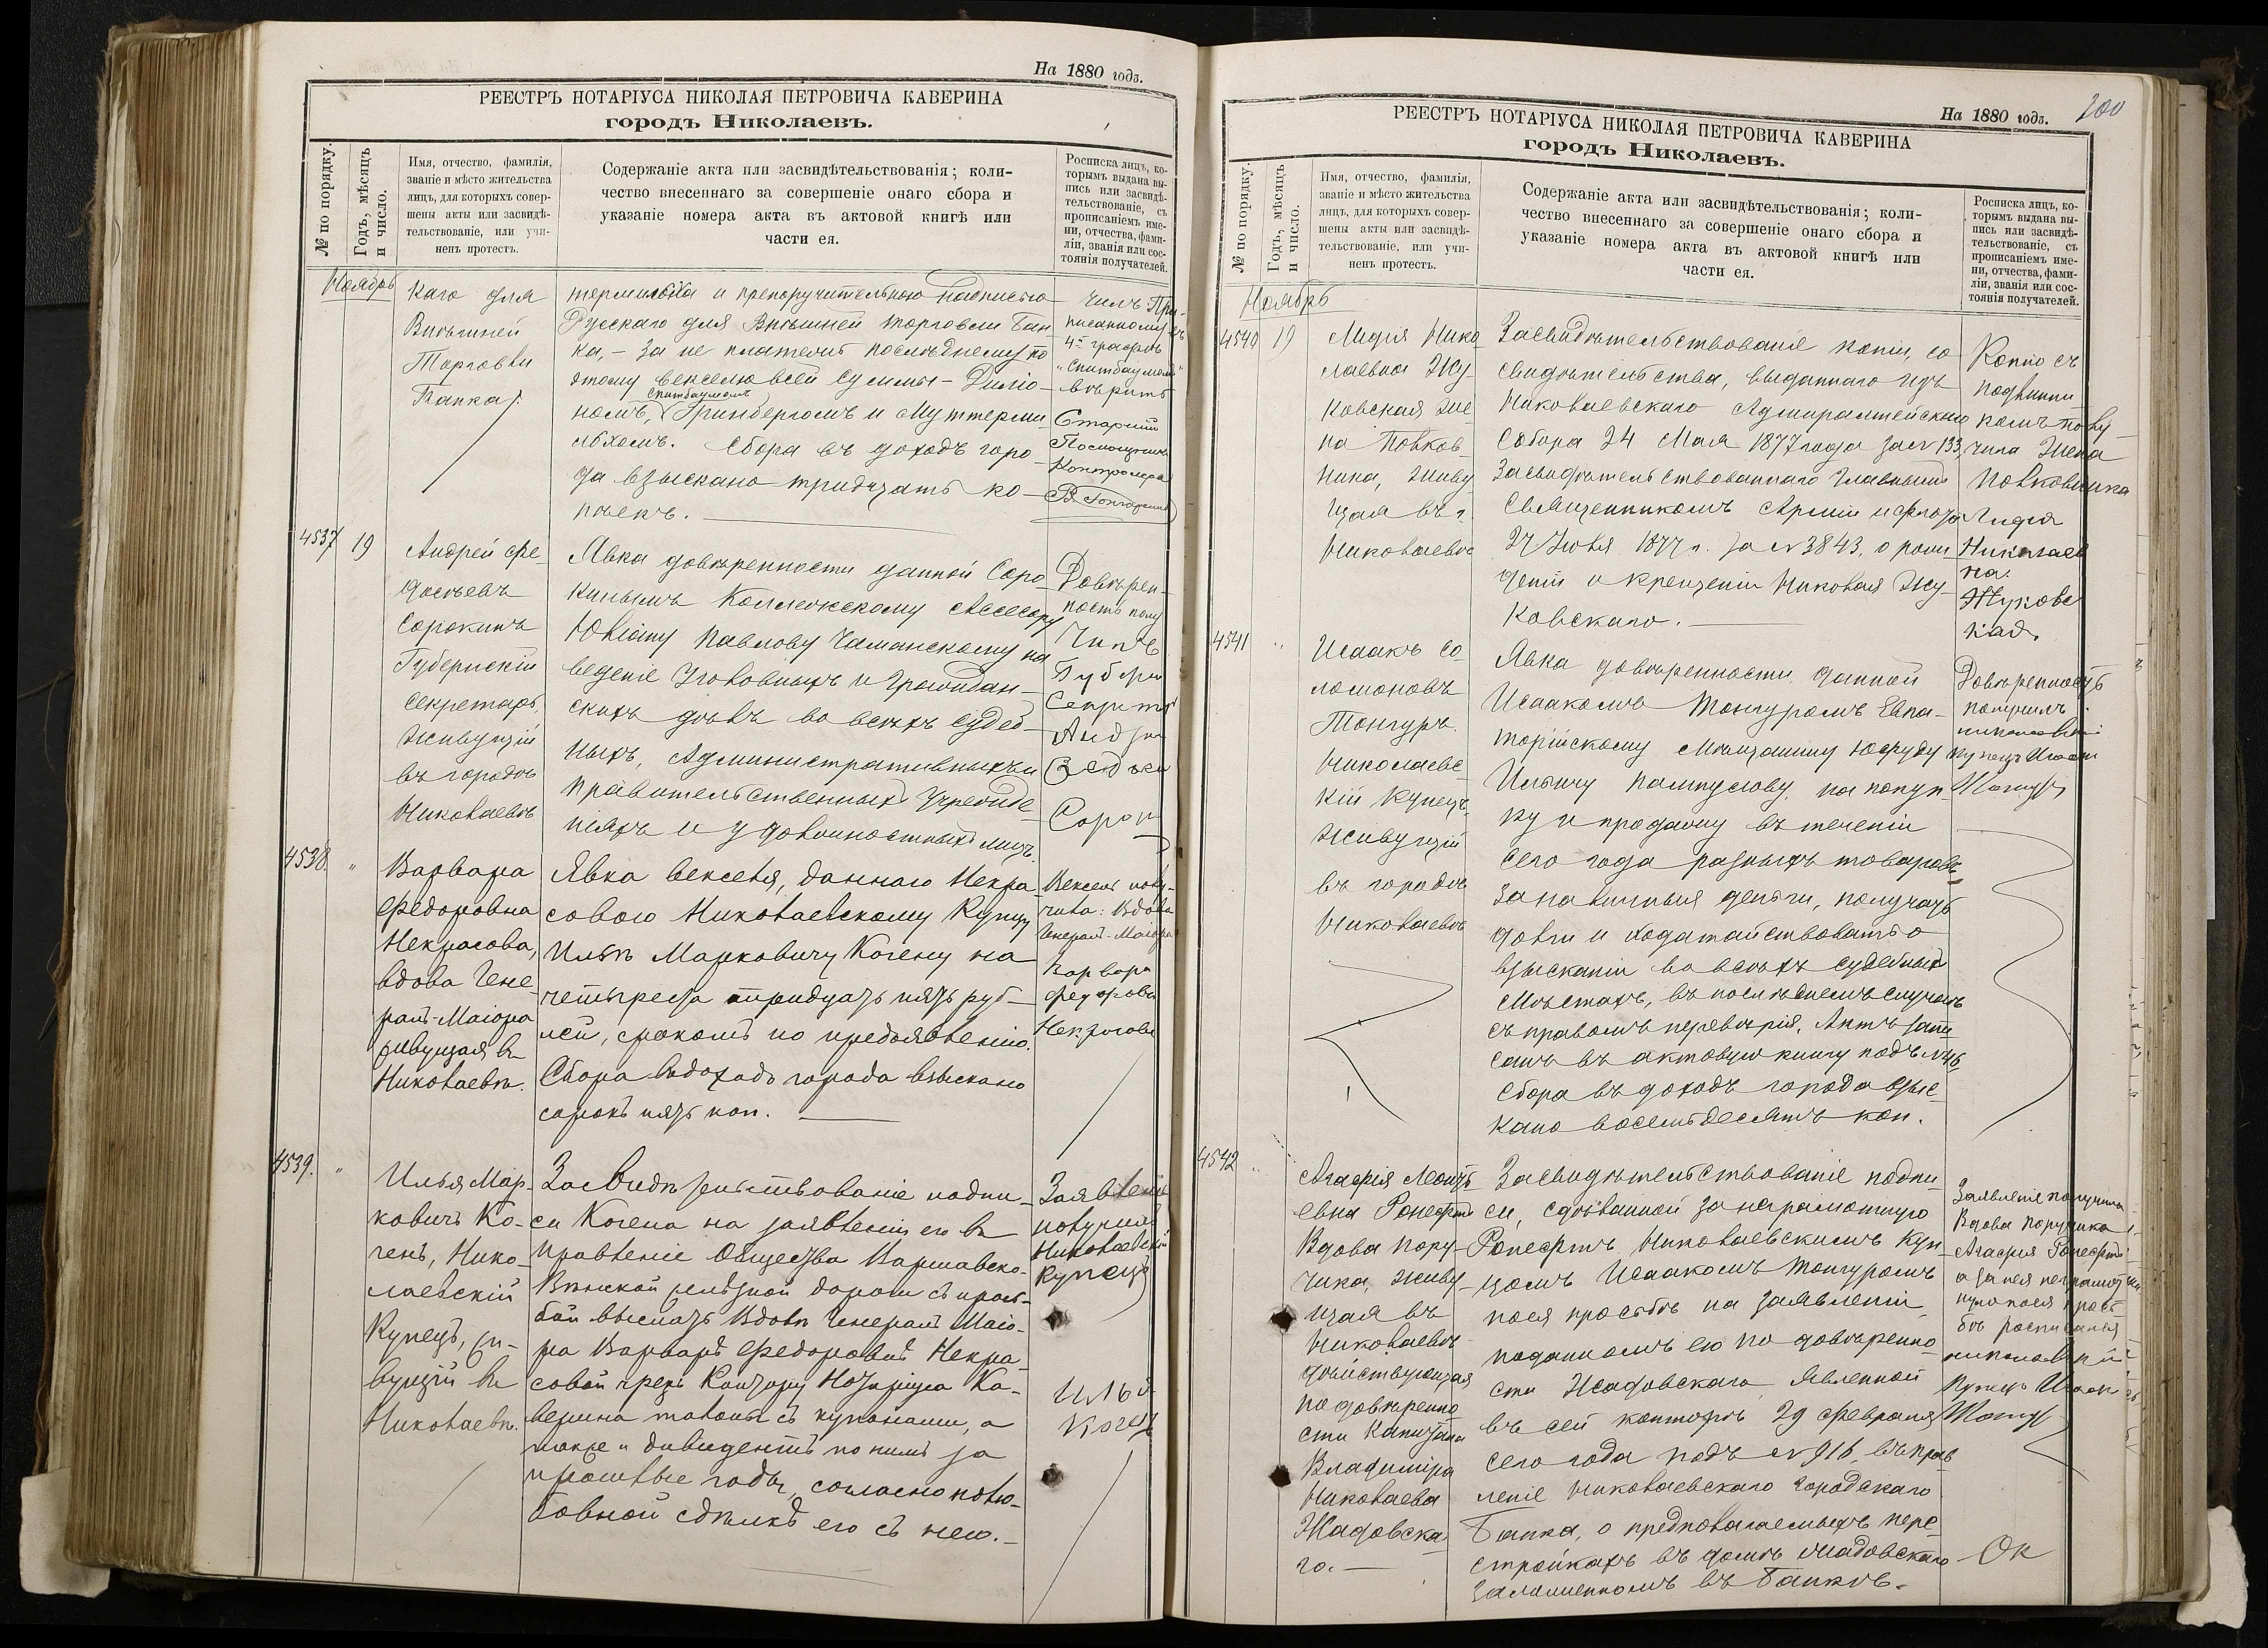 На 1880 годъ.
РЕЕСТРЪ НОТАРІУСА НИКОЛАЯ ПЕТРОВИЧА КАВЕРИНА
городъ Николаевъ.
№ по порядку.
Годъ, мѣсяцъ
и число.
Имя, отчество, фамилія,
званіе и мѣсто жительства
лицъ, для которыхъ совер-
шены акты или засвидѣ-
тельствованіе, или учи-
ненъ протестъ.
Содержаніе акта или засвидѣтельствованія; коли-
чество внесеннаго за совершеніе онаго сбора и
указаніе номера акта въ актовой книгѣ или
части ея.
Росписка лицъ, ко-
торымъ выдана вы-
пись или засвидѣ-
тельствованіе, съ
прописаніемъ име-
ни, отчества, фами-
ліи, званія или сос-
тоянія получателей.
Ноябрь
каго для
Внѣшней
Торговли
Банка).
и препоручительною надписью
Русскаго для Внѣшней торговли Бан
ка, – за не платежъ послѣднему по
этому векселю всей суммы –
Спитбаумомъ
номъ, Гринбергомъ и Муттерми
льхомъ. Сбора въ доходъ горо
да взыскано тридцать ко-
пѣекъ.
писанному въ
4й графѣ
"Спитбаумомъ"
вѣрить
Старшій
Помощникъ
Контролера
4537
19
Андрей Фе
досѣевъ
Сорокинъ
Губернскій
Секретарь,
живущій
въ городѣ
Николаевѣ
Явка довѣренности данной Соро
кинымъ Коллежскому Ассесору
Юліану Павлову Чаманскому на
веденіе Уголовныхъ и Граждан-
скихъ дѣлъ во всѣхъ Судеб
ныхъ, Административныхъ и
Правительственныхъ Учрежде
ніяхъ и у должностныхъ лицъ.
Довѣрен-
ность полу
Губерн
Секрет
Андр
Сорок
4538.
"
Варвара
Федоровна
Некрасова,
вдова Гене
ралъ-Маіора
живущая въ
Николаевѣ.
Явка векселя, даннаго Некра
совою Николаевскому Купцу
Ильѣ Марковичу Когену на
четыреста тридцать пять руб-
лей, срокомъ по предъявленію.
Сбора въ доходъ города взыскано
сорокъ пять коп.
Вексель полу-
чила: Вдова
Генералъ-Маіора
Варвара
Федоровн
Некрасова
4539.
"
Илья Мар-
ковичъ Ко-
генъ, Нико-
лаевскій
Купецъ, жи-
вущій въ
Николаевѣ.
Засвидѣтельствованіе подпи-
си Когена на заявленіи его въ
Правленіе Общества Варшавско-
Вѣнской желѣзной дороги съ прось-
бой выслать Вдовѣ Генералъ Маіо-
ра Варварѣ Федоровнѣ Некра-
совой чрезъ Контору Нотаріуса Ка-
верина талоны съ купонами, а
также и дивидентъ по нимъ за
прошлые годы, согласно полю-
бовной сдѣлкѣ его съ нею.
Заявленіе
получилъ
Николаевскій
Купецъ
Илья
Когенъ
200
На 1880 годъ.
РЕЕСТРЪ НОТАРІУСА НИКОЛАЯ ПЕТРОВИЧА КАВЕРИНА
городъ Николаевъ.
№ по порядку.
Годъ, мѣсяцъ
и число.
Имя, отчество, фамилія,
званіе и мѣсто жительства
лицъ, для которыхъ совер-
шены акты или засвидѣ-
тельствованіе, или учи-
ненъ протестъ.
Содержаніе акта или засвидѣтельствованія; коли-
чество внесеннаго за совершеніе онаго сбора и
указаніе номера акта въ актовой книгѣ или
части ея.
Росписка лицъ, ко-
торымъ выдана вы-
пись или засвидѣ-
тельствованіе, съ
прописаніемъ име-
ни, отчества, фами-
ліи, званія или сос-
тоянія получателей.
Ноябрь
4540
19
Лидія Нико
лаевна Жу-
ковская же
на Полков-
ника, живу
щая въ г.
Николаевѣ
Засвидѣтельствованіе копіи, со
свидѣтельства, выданнаго изъ
Николаевскаго Адмиралтейскаго
Собора 24 Мая 1877 года за № 133,
Засвидѣтельствованнаго Главнымъ
Священникомъ Арміи и флота
27 Іюля 1877 г. за № 3843, о рож
деніи и крещеніи Николая Жу-
ковскаго.
Копію съ
подлинни-
комъ полу-
чила Жена
Полковника
Лидія
Николаев
на
Жуковс
кая.
4541
"
Исаакъ Со
ломоновъ
Тонгуръ
Николаевс-
кій Купецъ
живущій
въ городѣ
Николаевѣ
Явка довѣренности, данной
Исаакомъ Тонгуромъ Евпа-
торійскому Мѣщанину
Ильичу на покуп-
ку и продажу въ теченіи
сего года разныхъ товаровъ
за наличныя деньги, получать
долги и ходатайствовать о
взысканіи во всѣхъ судебныхъ
мѣстахъ, въ послѣднемъ случаѣ
съ правомъ перевѣрія. Актъ запи
санъ въ актовую книгу подъ №
Сбора въ доходъ города взыс
кано восемьдесятъ коп.
Довѣренность
получилъ
николаевскій
купецъ Исаакъ
Тонгуръ
4542
"
Агафія Леонть
евна Ронефтъ
Вдова Пору-
чика, живу-
щая въ
Николаевѣ
дѣйствующая
по довѣренно
сти Капитана
Владиміра
Николаева
Жадовска
го. —
Засвидѣтельствованіе подпи
си, сдѣланной за неграмотную
Ронефтъ, Николаевскимъ Куп
цомъ Исаакомъ Тонгуромъ
по ея просьбѣ на заявленіи
поданномъ ею по довѣренно
сти Жадовскаго явленной
въ сей конторѣ 29 Февраля
сего года подъ № 916, въ Прав
леніе Николаевскаго Городскаго
Банка, о предполагаемыхъ пере
стройкахъ въ домѣ Жадовскаго
заложенномъ въ Банкѣ.
Заявленіе получила
Вдова Поручика
Агафія Ронефтъ
а за нея неграмот
ную по ея прось
бѣ росписался
николаевскій
Купецъ Исаакъ
Тонгуръ